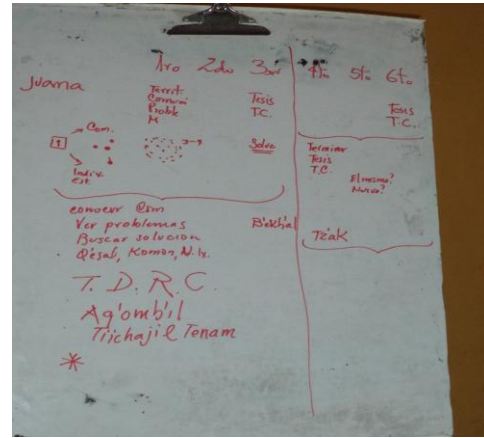 1ro 2do 3ro 4to 5to 6to
Juama
Territ
Comuni
Proble
M
Tesis
T.C.
Tesis
T.C.
Com.
1
Indiv.
est
Terminar
Tesis
T.C.
El mismo?
Nuevo?
conocer
Ver problemas
Buscar solucion
Q'esal, Komon, N.
Tz'ak
T. D. R. C.
Aq'ombil
Tiichajil Tenam